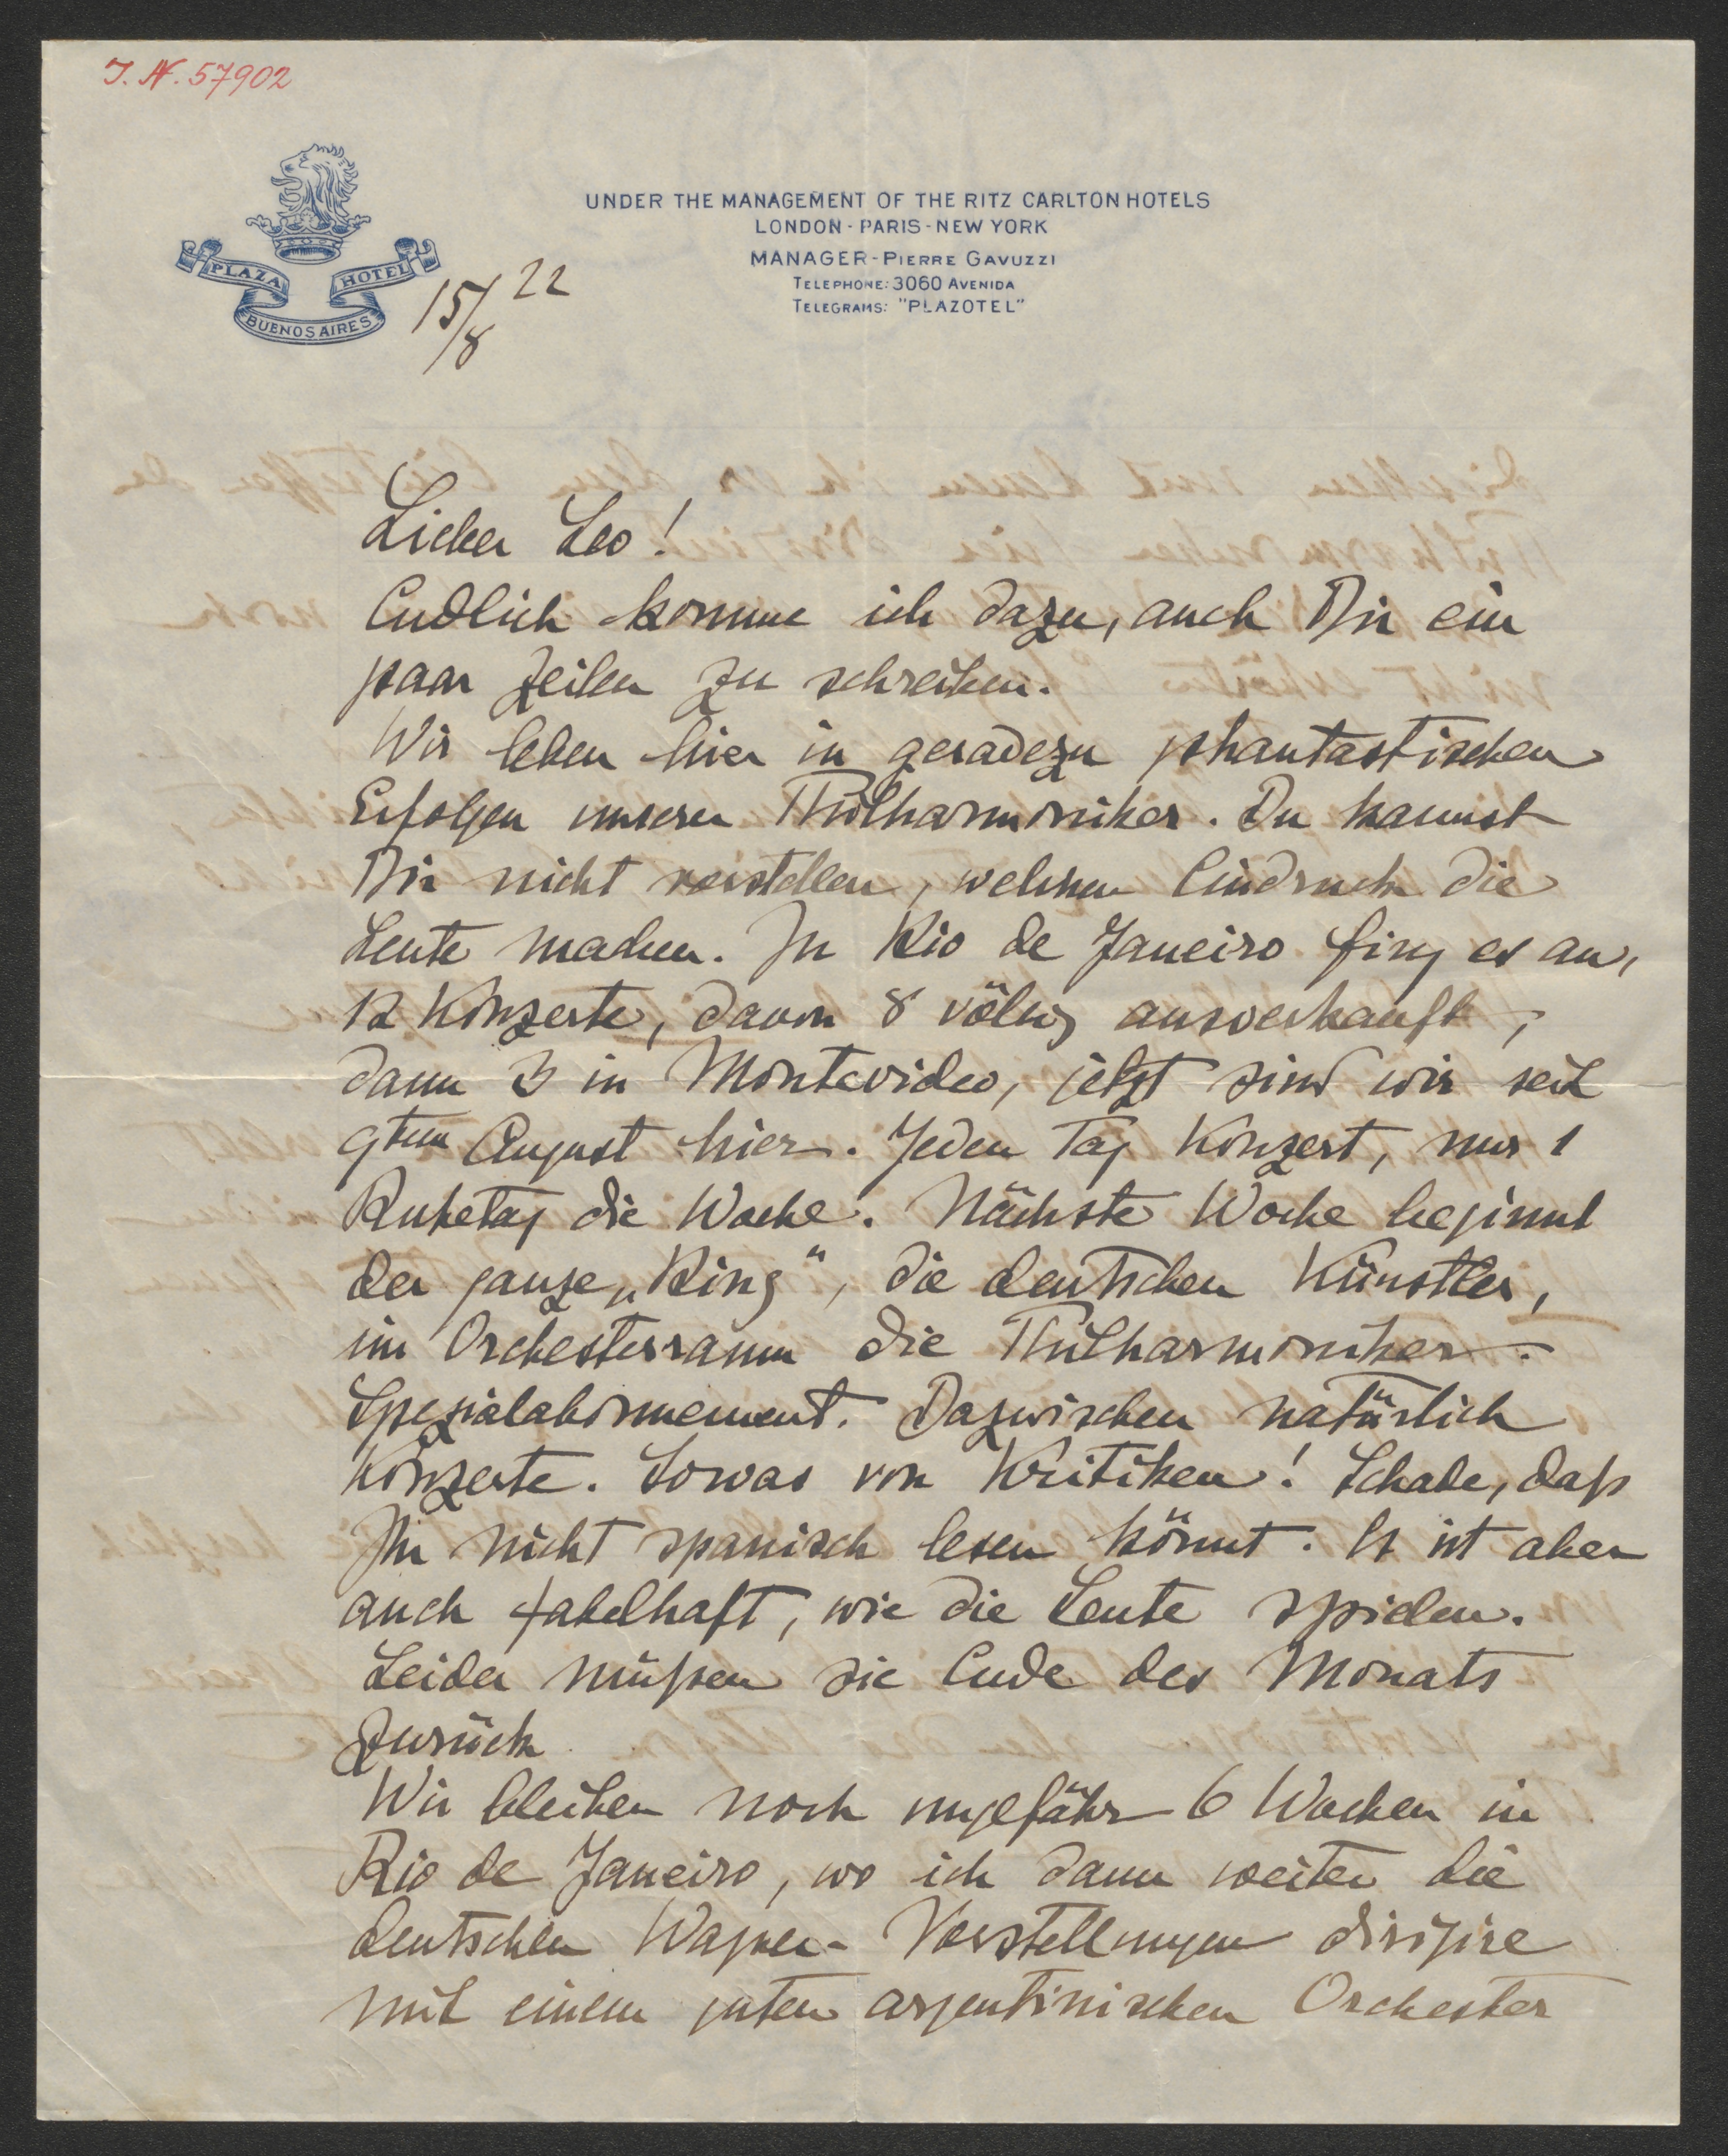 J. N. 57902
PLAZA HOTEL
BUENOS AIRES
UNDER THE MANAGEMENT OF THE RITZ CARLTON HOTELS
LONDON - PARIS - NEW YORK
MANAGER - PIERRE GAVUZZI
TELEPHONE: 3060 AVENIDA
TELEGRAMS: "PLAZOTEL"
15/8 22
Lieber Leo!
Endlich komme ich dazu, auch Dir ein
paar Zeilen zu schreiben.
Wir leben hier in geradezu phantastischen
Erfolgen unserer Philharmoniker. Du kannst
Dir nicht vorstellen, welchen Eindruck die
Leute machen. In Rio de Janeiro fing es an,
12 Konzerte, davon 8 völlig ausverkauft,
dann 3 in Montevideo, jetzt sind wir seit
9ten August hier. Jeden Tag Konzert, nur 1
Ruhetag die Woche. Nächste Woche beginnt
der ganze „Ring“, die deutschen Künstler,
im Orchesterraum die Philharmoniker.
Spezialabonnement. Dazwischen natürlich
Konzerte. Sowas von Kritiken! Schade, daß
Ihr nicht spanisch lesen könnt. Es ist aber
auch fabelhaft, wie die Leute spielen.
Leider müßen sie Ende des Monats
zurück.
Wir bleiben noch ungefähr 6 Wochen in
Rio de Janeiro, wo ich dann weiter die
deutschen Wagner-Vorstellungen dirigire
mit einem guten argentinischen Orchester